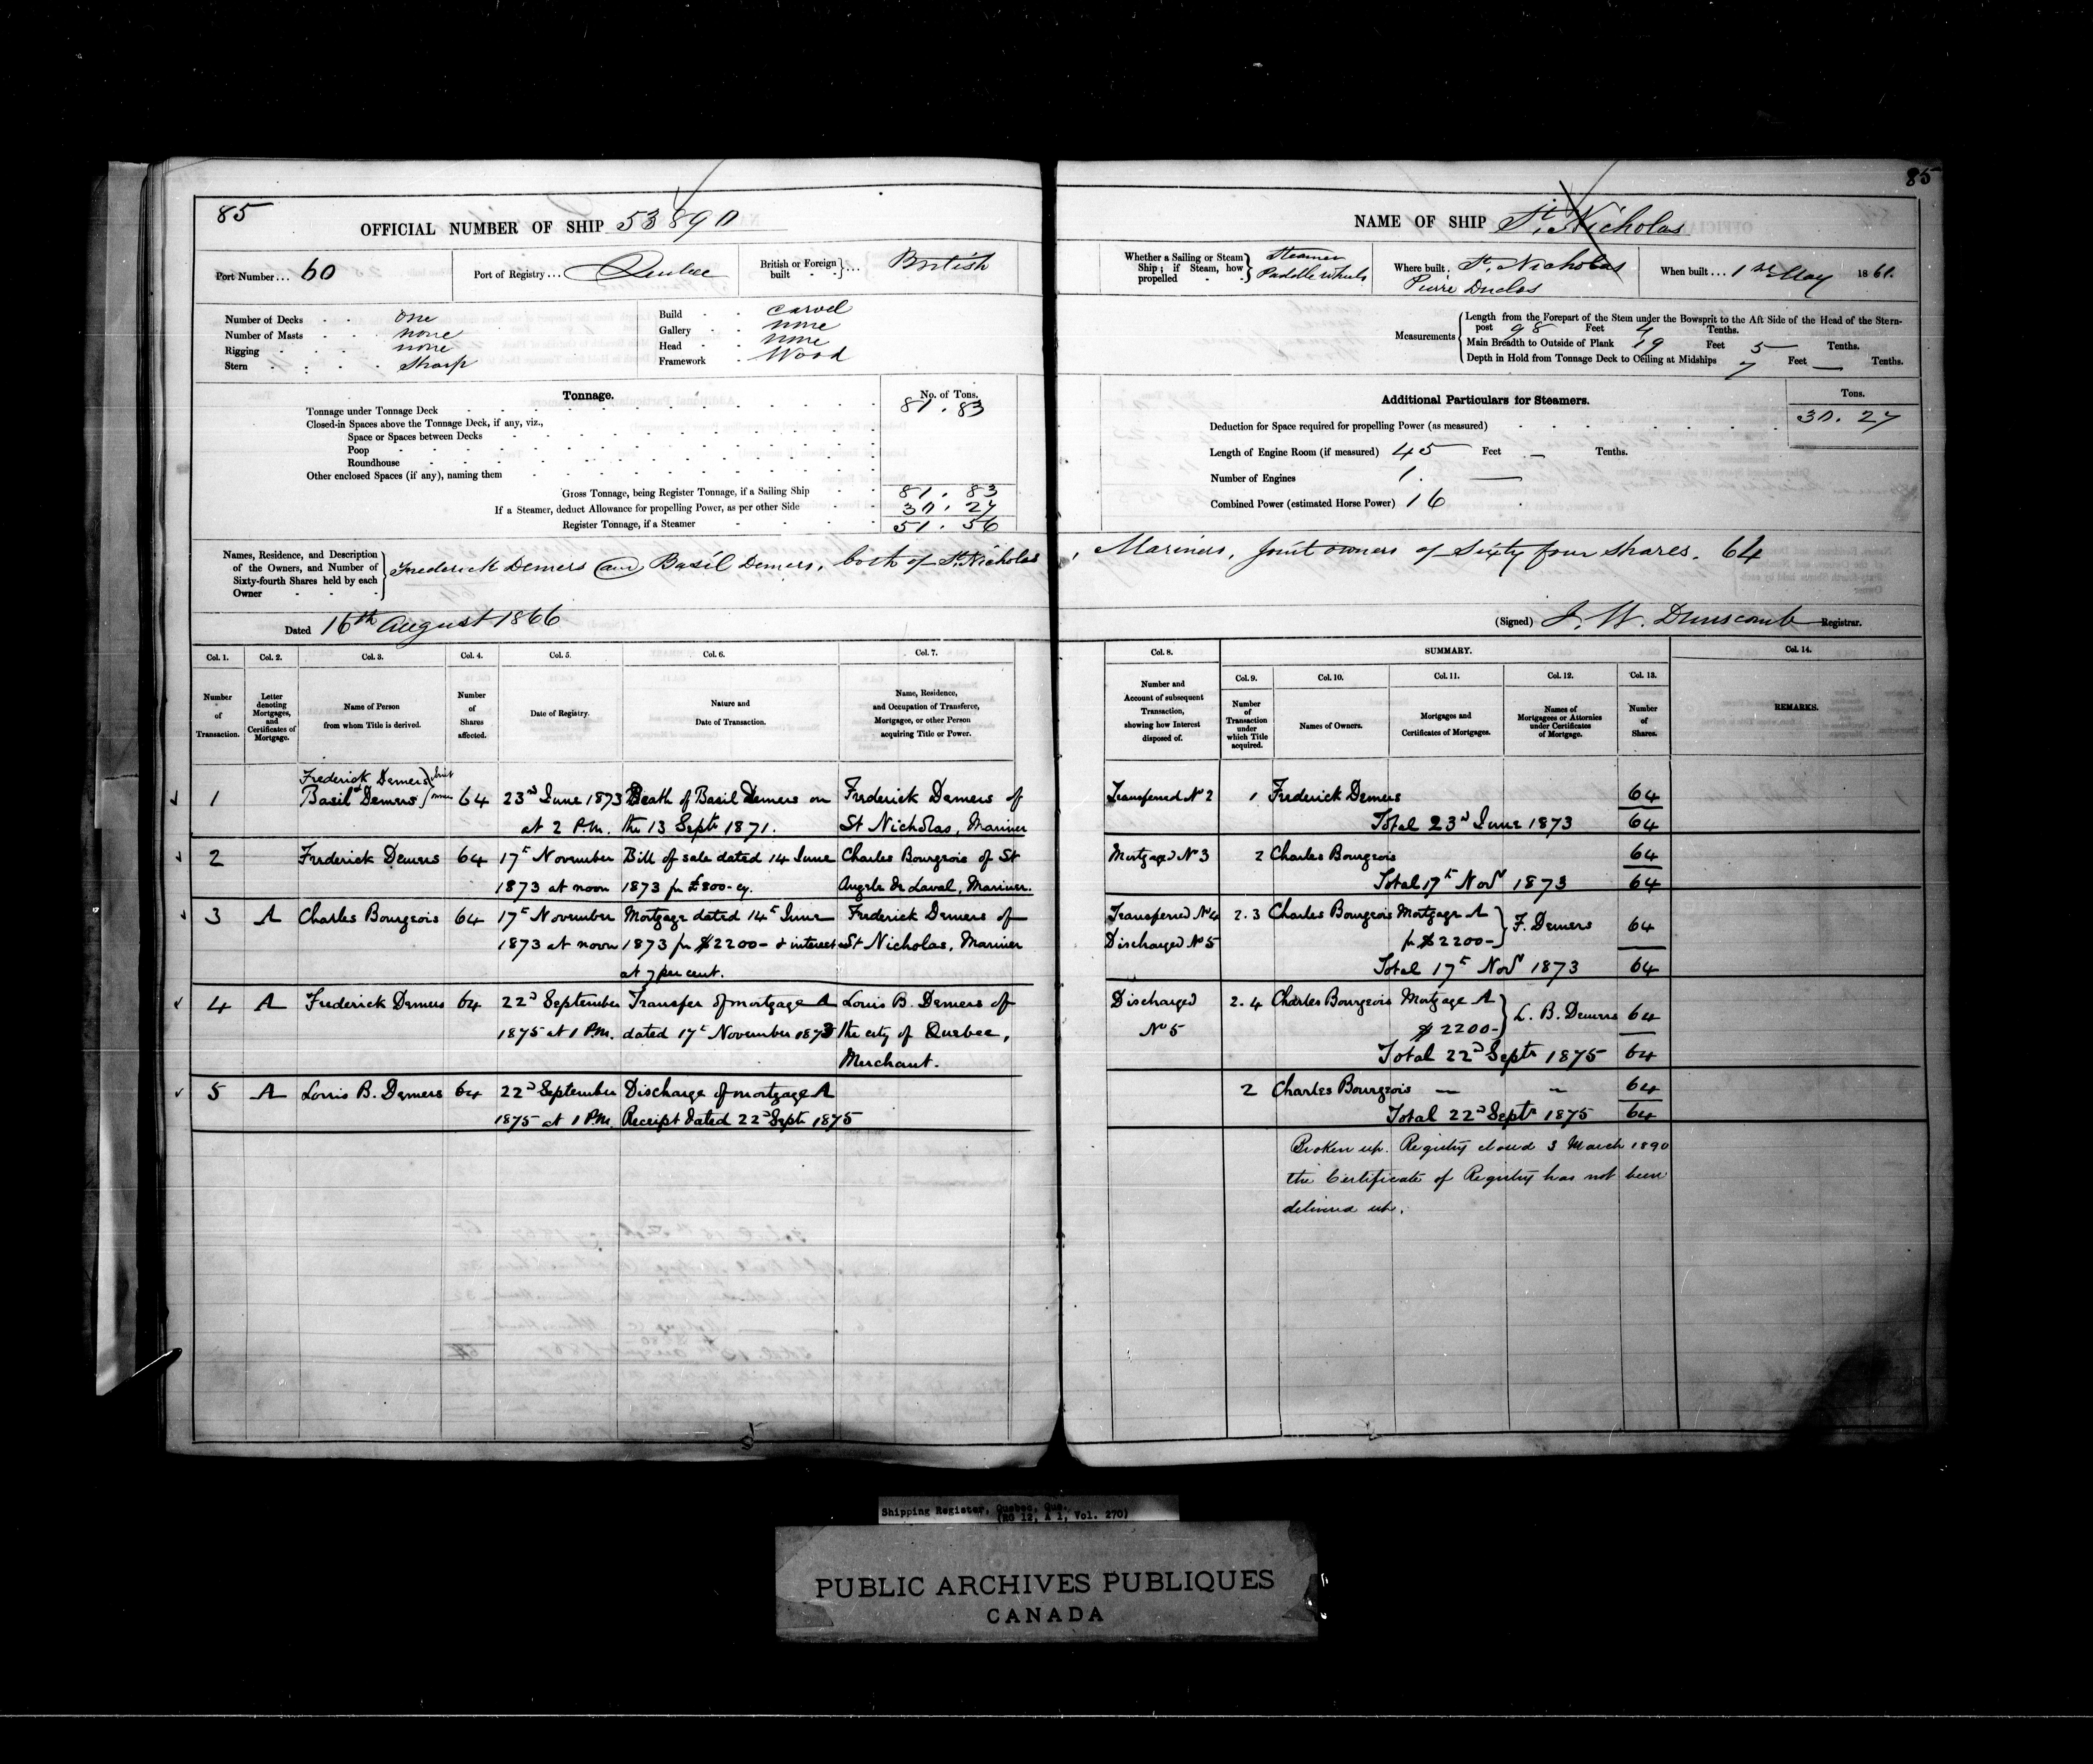 85
OFFICIAL NUMBER OF SHIP 53890
Port Number... 60
Port of Registry... Quebec
British or Foreign built - - } ... British
Number of Decks - - one
Number of Masts - - none
Rigging - - - none
Stern - - - - Sharp
Build - - carvel
Gallery - - none
Head - - none
Framework - Wood
Tonnage.
No. of Tons.
Tonnage under Tonnage Deck 81.83
Closed-in Spaces above the Tonnage Deck, if any, viz.,
Space or Spaces between Decks
Poop
Roundhouse
Other enclosed Spaces (if any), naming them
Gross Tonnage, being Register Tonnage, if a Sailing Ship 81.83
If a Steamer, deduct Allowance for propelling Power, as per other Side 30.27
Register Tonnage, if a Steamer 51.56
Names, Residence, and Description of the Owners, and Number of Sixty-fourth Shares held by each Owner } Frederick Demers and Basil Demers, both of St. Nicholas
Dated 16th August 1866
Col. 1. Col. 2. Col. 3. Col. 4. Col. 5. Col. 6. Col. 7.
Number of Transaction.
Letter denoting Mortgages, and Certificates of Mortgage.
Name of Person from whom Title is derived.
Number of Shares affected.
Date of Registry.
Nature and Date of Transaction.
Name, Residence, and Occupation of Transferee, Mortgagee, or other Person acquiring Title or Power.
Frederick Demers } Joint
1 Basil Demers } owners 64 23d June 1873 Death of Basil Demers on Frederick Demers of
at 2 P.M. the 13 Septr 1871. St Nicholas, Mariner
2 Frederick Demers 64 17t November Bill of sale dated 14 June Charles Bourgeois of St
1873 at noon 1873 for £800- cy. Angele de Laval, Mariner.
3 A Charles Bourgeois 64 17t November Mortgage dated 14t June Frederick Demers of
1873 at noon 1873 for $2200- & interest St Nicholas, Mariner
at 7 per cent.
4 A Frederick Demers 64 22d September Transfer of mortgage A Louis B. Demers of
1875 at 1 P.M. dated 17t November 1873 the city of Quebec,
Merchant.
5 A Louis B. Demers 64 22d September Discharge of mortgage A
1875 at 1 P.M. Receipt dated 22d Septr 1875
85
NAME OF SHIP St. Nicholas
Whether a Sailing or Steam Ship; if Steam, how propelled - - } Steamer Paddle wheels
Where built. St. Nicholas
Pierre Duclos
When built... 1st May 1861.
Measurements
Length from the Forepart of the Stem under the Bowsprit to the Aft Side of the Head of the Stern-
post 98 Feet 4 Tenths.
Main Breadth to Outside of Plank 19 Feet 5 Tenths.
Depth in Hold from Tonnage Deck to Ceiling at Midships 7 Feet — Tenths.
Additional Particulars for Steamers.
Tons.
Deduction for Space required for propelling Power (as measured) 30.27
Length of Engine Room (if measured) 45 Feet — Tenths.
Number of Engines 1.
Combined Power (estimated Horse Power) 16
, Mariners, Joint owners of Sixty four shares. 64
(Signed) J. W. Dunscomb Registrar.
Col. 8. SUMMARY. Col. 14.
Number and Account of subsequent Transaction, showing how Interest disposed of.
Col. 9. Col. 10. Col. 11. Col. 12. Col. 13.
Number of Transaction under which Title acquired.
Names of Owners.
Mortgages and Certificates of Mortgages.
Names of Mortgagees or Attornies under Certificates of Mortgage.
Number of Shares.
REMARKS.
Transferred No 2 1 Frederick Demers 64
Total 23d June 1873 64
Mortgaged No 3 2 Charles Bourgeois 64
Total 17t Novr 1873 64
Transferred No 4 2.3 Charles Bourgeois Mortgage A } F. Demers 64
Discharged No 5 for $2200-
Total 17t Novr 1873 64
Discharged 2.4 Charles Bourgeois Mortgage A } L. B. Demers 64
No 5 $2200-
Total 22d Septr 1875 64
2 Charles Bourgeois — — 64
Total 22d Septr 1875 64
Broken up. Registry closed 3 March 1890
the Certificate of Registry has not been
delivered up.
Shipping Register, Quebec, Que.
(RG 12, A 1, Vol. 270)
PUBLIC ARCHIVES PUBLIQUES
CANADA